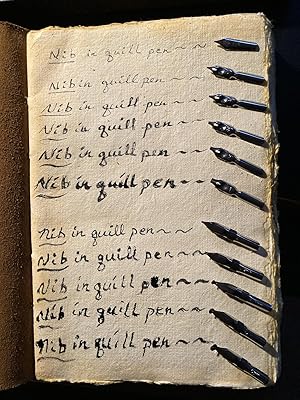 Nib in quill pen ~ ~
Nib in quill pen ~ ~
Nib in quill pen ~ ~
Nib in quill pen ~ ~
Nib in quill pen ~ ~
Nib in quill pen ~ ~
Nib in quill pen ~ ~
Nib in quill pen ~ ~
Nib in quill pen ~ ~
Nib in quill pen ~ ~
Nib in quill pen ~ ~